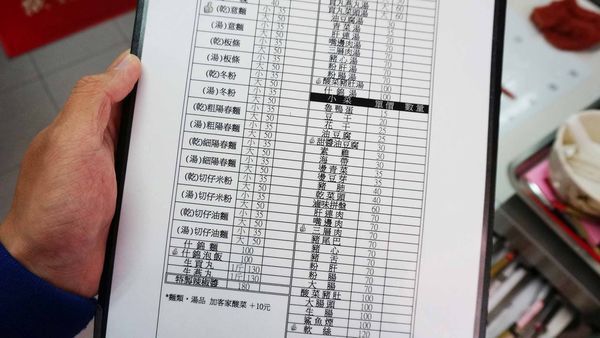 (乾)意麵 小 35
大 50
(湯)意麵 小 35
大 50
(乾)板條 小 35
大 50
(湯)板條 小 35
大 50
(乾)冬粉 小 35
大 50
(湯)冬粉 小 35
大 50
(乾)粗陽春麵 小 35
大 50
(湯)粗陽春麵 小 35
大 50
(乾)細陽春麵 小 35
大 50
(湯)細陽春麵 小 35
大 50
(乾)切仔米粉 小 35
大 50
(湯)切仔米粉 小 35
大 50
(乾)切仔油麵 小 35
大 50
(湯)切仔油麵 小 35
大 50
什錦麵 100
什錦泡飯 100
生貢丸 1斤 130
生燕丸 1斤 130
特製辣椒醬 180
*麵類・湯品 加客家酸菜 +10元
油豆腐湯
豬血湯
肝連湯
嘴邊肉湯
三層肉湯
豬心湯
粉肝湯
粉腸湯
酸菜豬肚湯
什錦湯 100
小菜 單價 數量
魯鴨蛋 15
豆干
花干
油豆腐
甜醬油豆腐
素雞
海帶
燙青菜
燙豆芽
豬肺
乾菜頭 40
滷味拼盤 60
肝連肉 70
嘴邊肉 70
三層肉 70
豬尾巴 70
豬心
豬舌
粉肝
粉腸
大腸
酸菜豬肚 100
大腸頭 100
生腸 100
鯊魚煙 100
軟絲 120